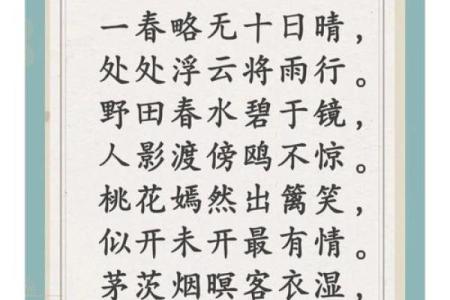 一春略无十日晴，
处处浮云将雨行。
野田春水碧于镜，
人影渡傍鸥不惊。
桃花嫣然出篱笑，
似开未开最有情。
茅茨烟暝客衣湿，